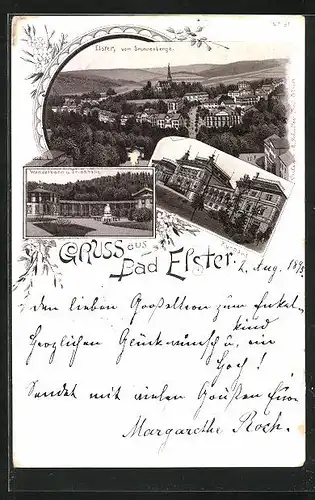 Elster, vom Brunnenberge.
Wandelbahn u. Trinkhalle
Kurhaus
Gruss aus
Bad Elster.
2. Aug. 1895
den lieben Großeltern zum Enkel-
kind
herzlichen Glückwunsch u. ein
hoch!
Sendet mit vielen Grüßen Eure
Margarethe Roch.